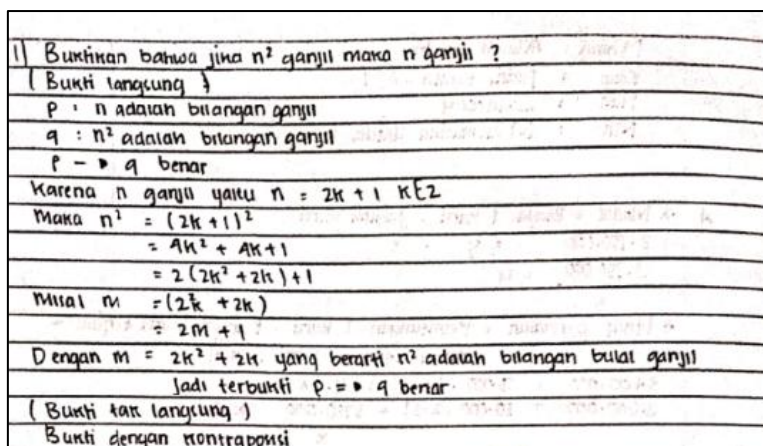 1) Buktikan bahwa jika n² ganjil maka n ganjil ?
( Bukti langsung )
p : n adalah bilangan ganjil
q : n² adalah bilangan ganjil
p → q benar
Karena n ganjil yaitu n = 2k + 1 k∈2
Maka n² = (2k + 1)²
= 4k² + 4k + 1
= 2 (2k² + 2k) + 1
Misal m = (2k² + 2k)
= 2m + 1
Dengan m = 2k² + 2k yang berarti n² adalah bilangan bulat ganjil
Jadi terbukti p ⇒ q benar
( Bukti tak langsung )
Bukti dengan kontraposisi